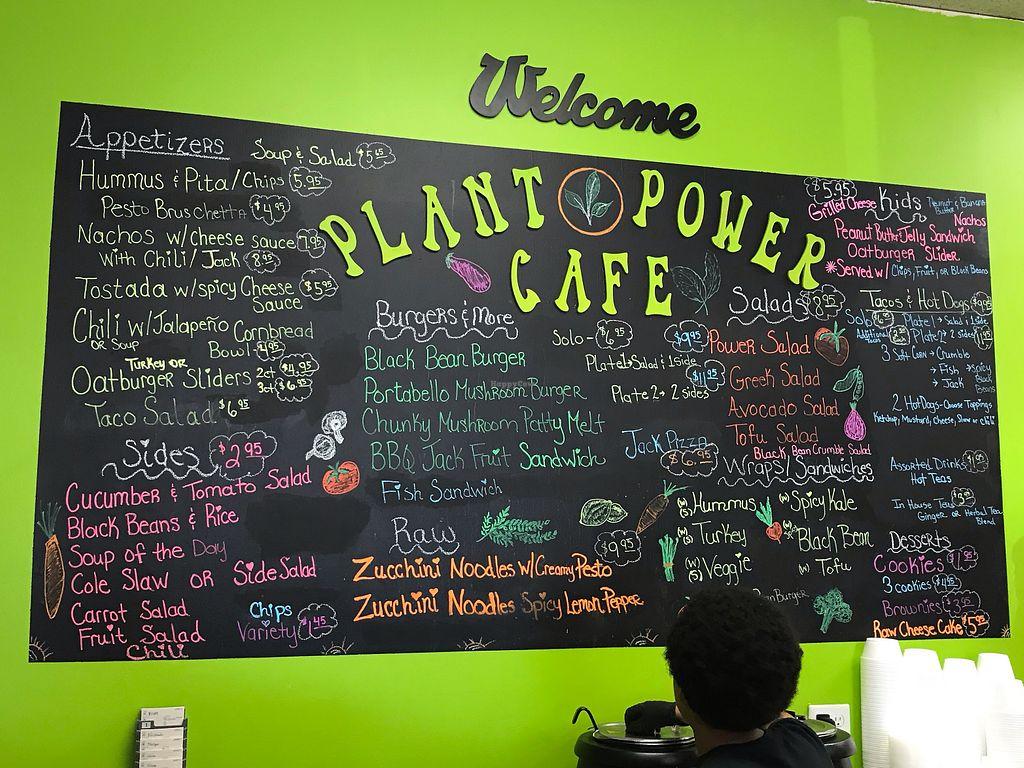 Welcome
PLANT POWER
CAFE
Appetizers
Soup & Salad $5.45
Hummus & Pita/Chips 5.95
Pesto Bruschetta $4.95
Nachos w/Cheese sauce 7.95
with Chili/Jack 8.95
Tostada w/spicy Cheese $5.95
Sauce
Chili w/Jalapeño Cornbread
or Soup
Bowl 4.95
Turkey or
Oatburger Sliders 2ct $4.95
3ct $6.95
Taco Salad $6.95
Sides $2.95
Cucumber & Tomato Salad
Black Beans & Rice
Soup of the Day
Cole Slaw OR Side Salad
Carrot Salad
Fruit Salad
Chili
Chips
Variety $1.45
Burgers & More
Solo - 6.95
Plate 1 → Salad & 1 side $9.95
Plate 2 → 2 sides $11.95
Black Bean Burger
Portabello Mushroom Burger
Chunky Mushroom Patty Melt
BBQ Jack Fruit Sandwich
Fish Sandwich
Jack Pizza
$6.95
Raw
$9.95
Zucchini Noodles w/Creamy Pesto
Zucchini Noodles Spicy Lemon Pepper
Salads $8.95
Power Salad
Greek Salad
Avocado Salad
Tofu Salad
Black Bean Crumble Salad
Wraps/Sandwiches
Hummus
Turkey
(W)
(S) Veggie
Spicy Kale
Black Bean
(W) Tofu
Burger
$5.95
Kids
Grilled Cheese
Peanut & Banana
Butter
Nachos
Peanut Butter Jelly Sandwich
Oatburger Slider
*Served w/ Chips, Fruit, or Black Beans
Tacos & Hot Dogs
Solo
Plate 1 → Salad & 1 side
Plate 2 → 2 sides
3 Soft Corn → Crumble
→ Fish → spicy
→ Jack Black
Beans
2 HotDogs - Choose Toppings
Ketchup, Mustard, Cheese, Slaw or Chili
Assorted Drinks $1.95
Hot Teas
In House Teas
Ginger or Herbal Tea
Blend
Desserts
Cookies $1.95
3 cookies $4.95
Brownies $3.95
Raw Cheese Cake $5.95